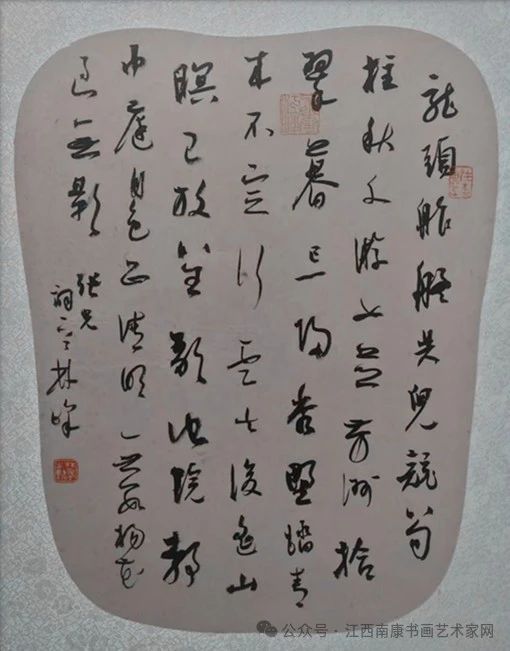 龍頭舴艋吴兒競笋
柱秋千遊女並芳洲拾
翠暮忘歸秀野踏青
来不定行雲去後遥山
暝已放笙歌池院静
中庭月色正清明無數楊花
過無影
張先
詞 林
公众号·江西南康书画艺术家网